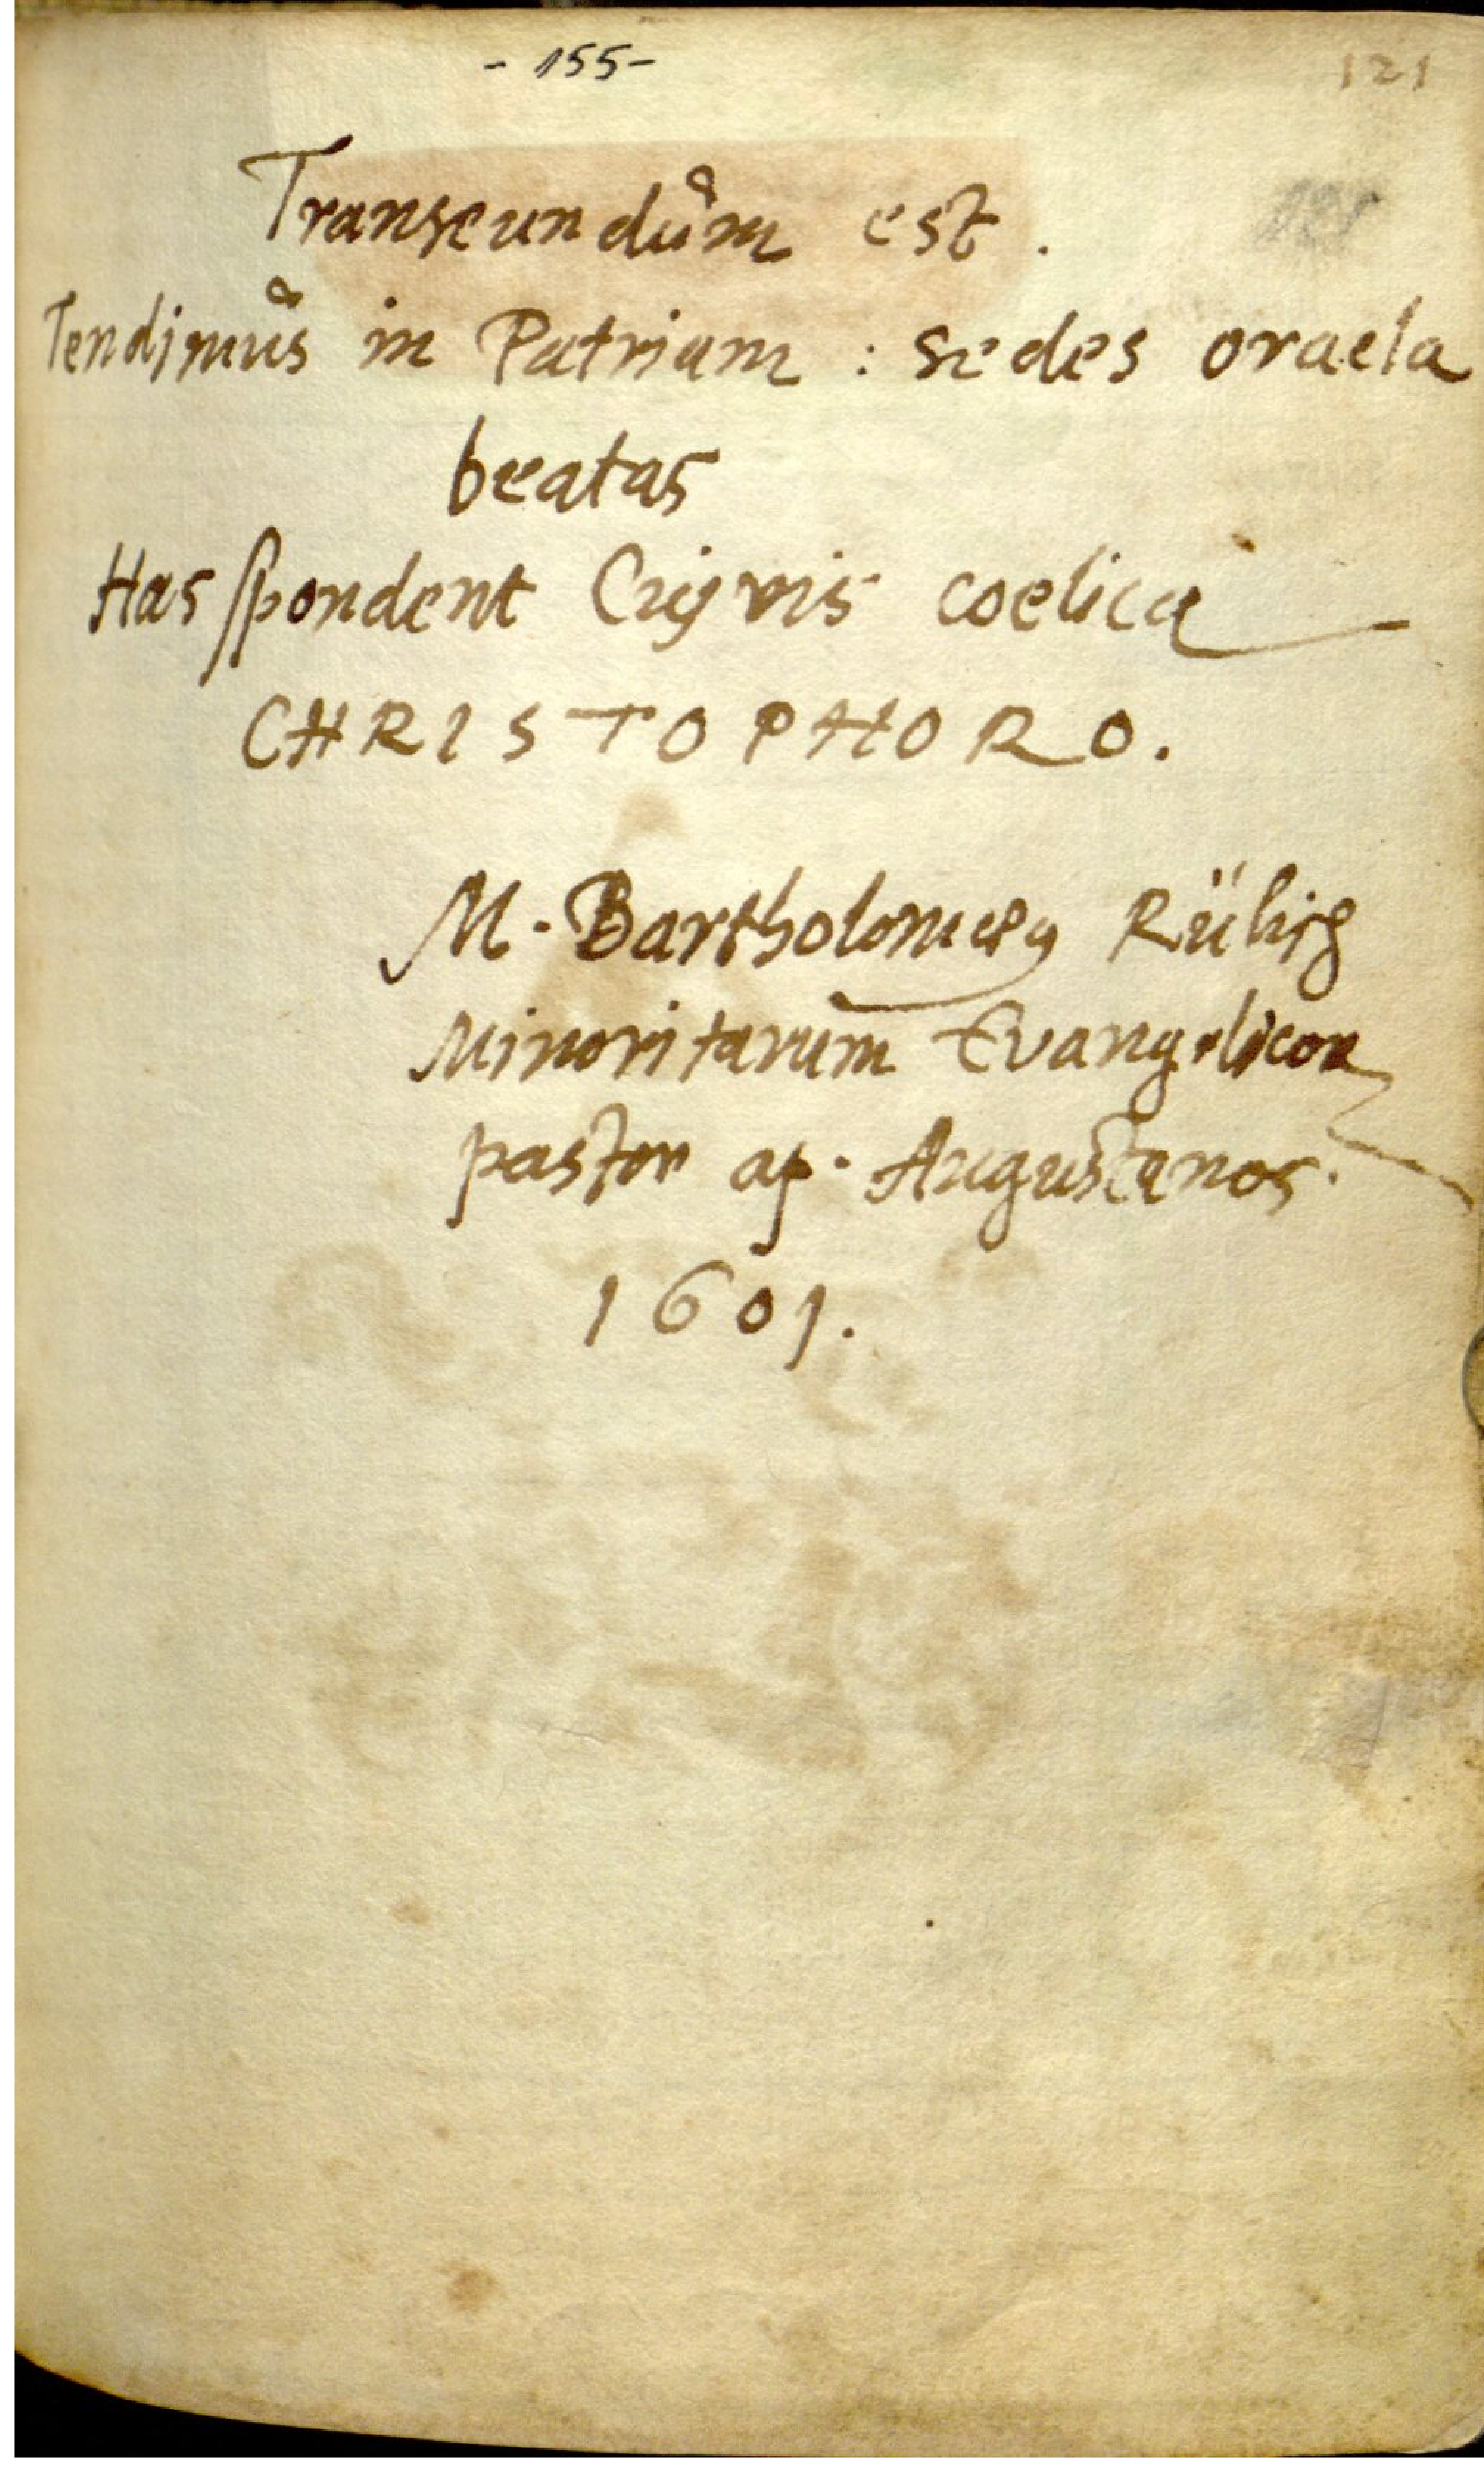 - 155-
121
Transeundům est.
Tendimůs in Patriam : sedes oracla
beatas
Has spondent Cuivis coelica
CHRISTOPHORO.
M. Bartholomæꝰ Rülich
Minoritarum Evangelicor
pastor ap. Augustanos.
1601.